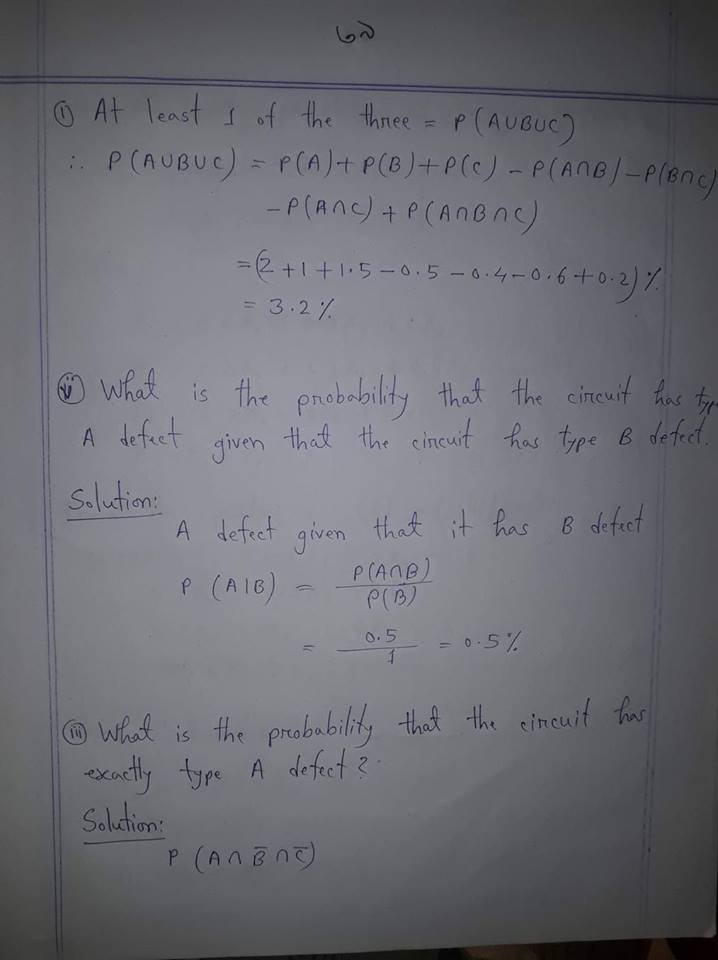 ৩৯
(i) At least 1 of the three = P(A∪B∪C)
∴ P(A∪B∪C) = P(A)+P(B)+P(C) - P(A∩B) - P(B∩C)
- P(A∩C) + P(A∩B∩C)
= (2+1+1.5-0.5-0.4-0.6+0.2)%
= 3.2%
(ii) What is the probability that the circuit has typ
A defect given that the circuit has type B defect.
Solution:
A defect given that it has B defect
P (A|B) = P(A∩B)
P(B)
= 0.5
1 = 0.5%
(iii) What is the probability that the circuit has
exactly type A defect?
Solution:
P (A∩B̅∩C̅)